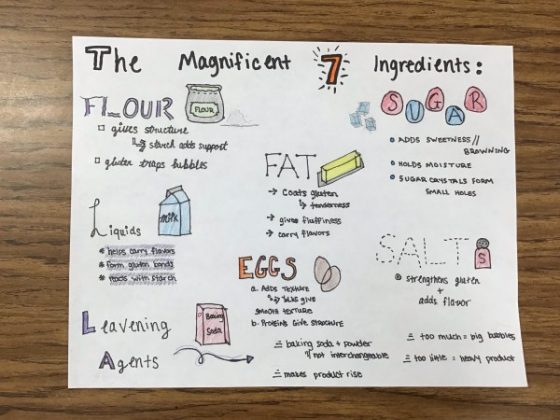 The Magnificent 7 Ingredients:
FLOUR
FLOUR
gives structure
↳ starch adds support
gluten traps bubbles
FAT
→ Coats gluten
↳ tenderness
→ gives fluffiness
→ carry flavors
SUGAR
ADDS SWEETNESS//
BROWNING
HOLDS MOISTURE
SUGAR CRYSTALS FORM
SMALL HOLES
Liquids
Milk
* helps carry flavors
* form gluten bonds
* reacts with starch
EGGS
a. Adds texture
↳ yolks give
smooth texture
b. Proteins Give structure
SALT
S
strengthens gluten
+
adds flavor
Leavening
Agents
Baking
Soda
= baking soda + powder
not interchangeable
= makes product rise
= too much = big bubbles
= too little = heavy product